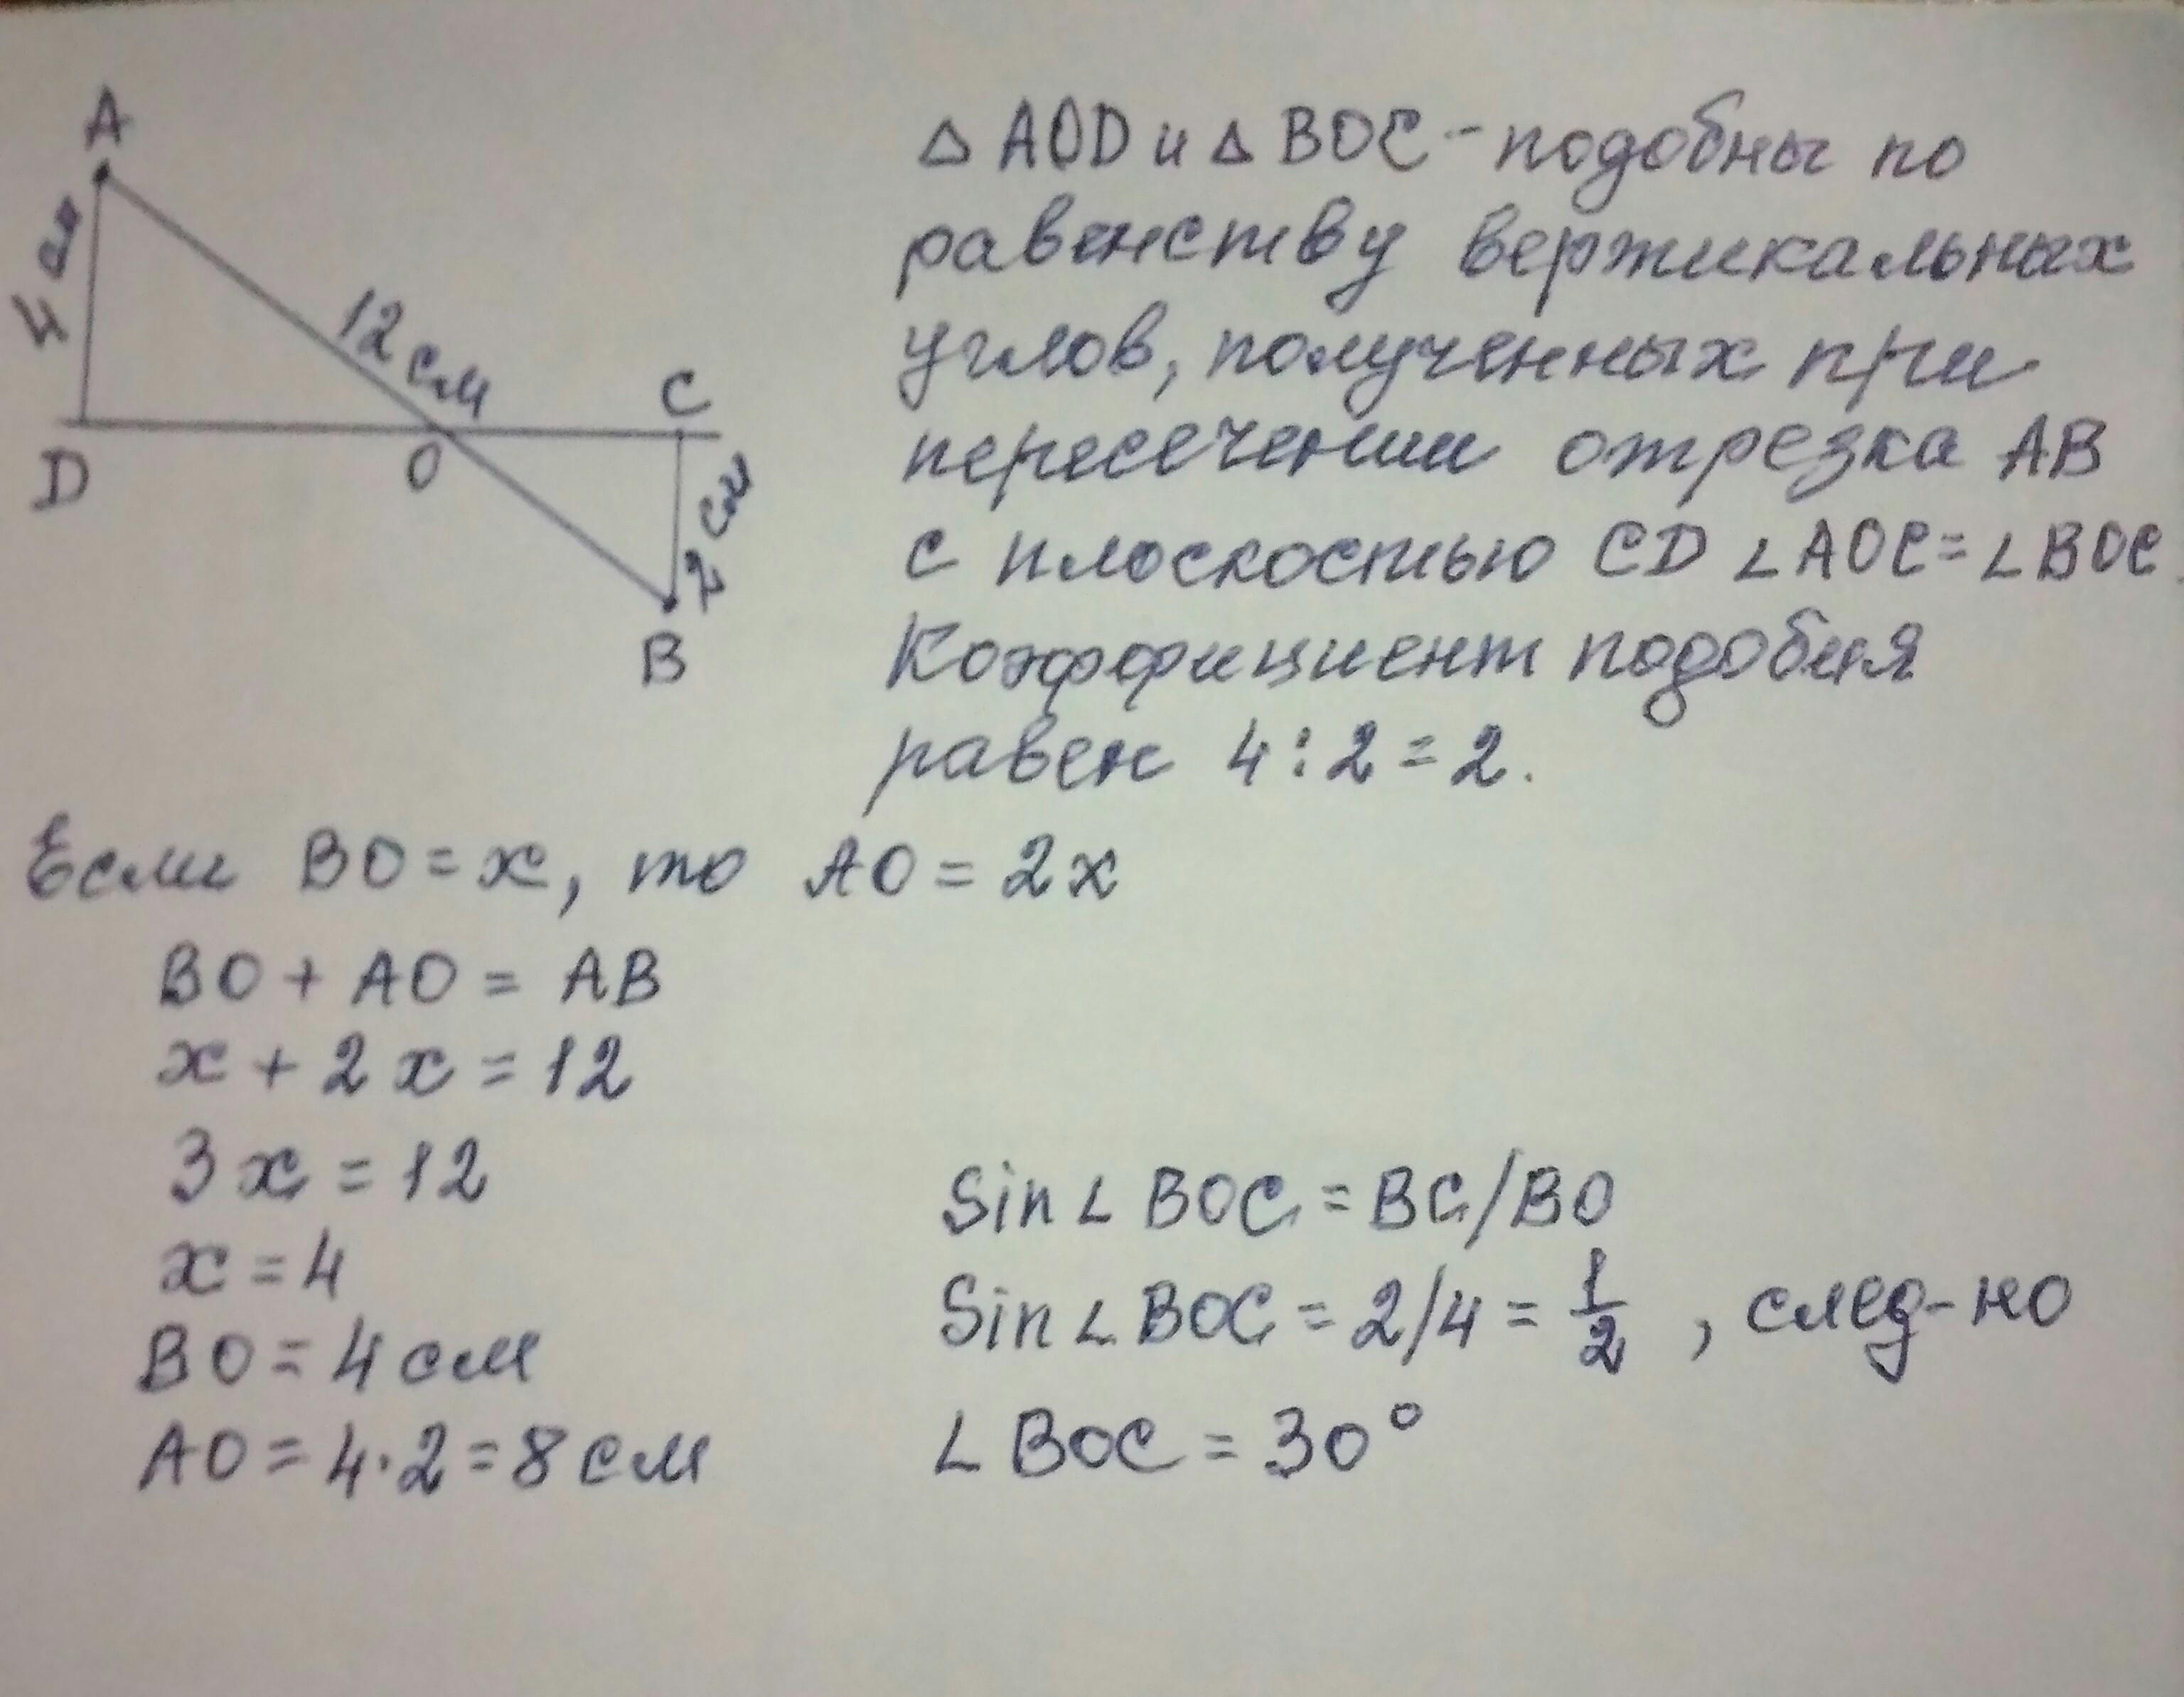 A
4 см
12 см
D
O
C
2 см
B
△ AOD и △ BOC - подобны по
равенству вертикальных
углов, полученных при
пересечении отрезка AB
с плоскостью CD ∠AOC = ∠BOC.
Коэффициент подобия
равен 4 : 2 = 2.
Если BO = x, то AO = 2x
BO + AO = AB
x + 2x = 12
3x = 12
x = 4
BO = 4 см
AO = 4·2 = 8 см
Sin ∠ BOC = BC/BO
Sin ∠ BOC = 2/4 = 1/2 , след-но
∠ BOC = 30°